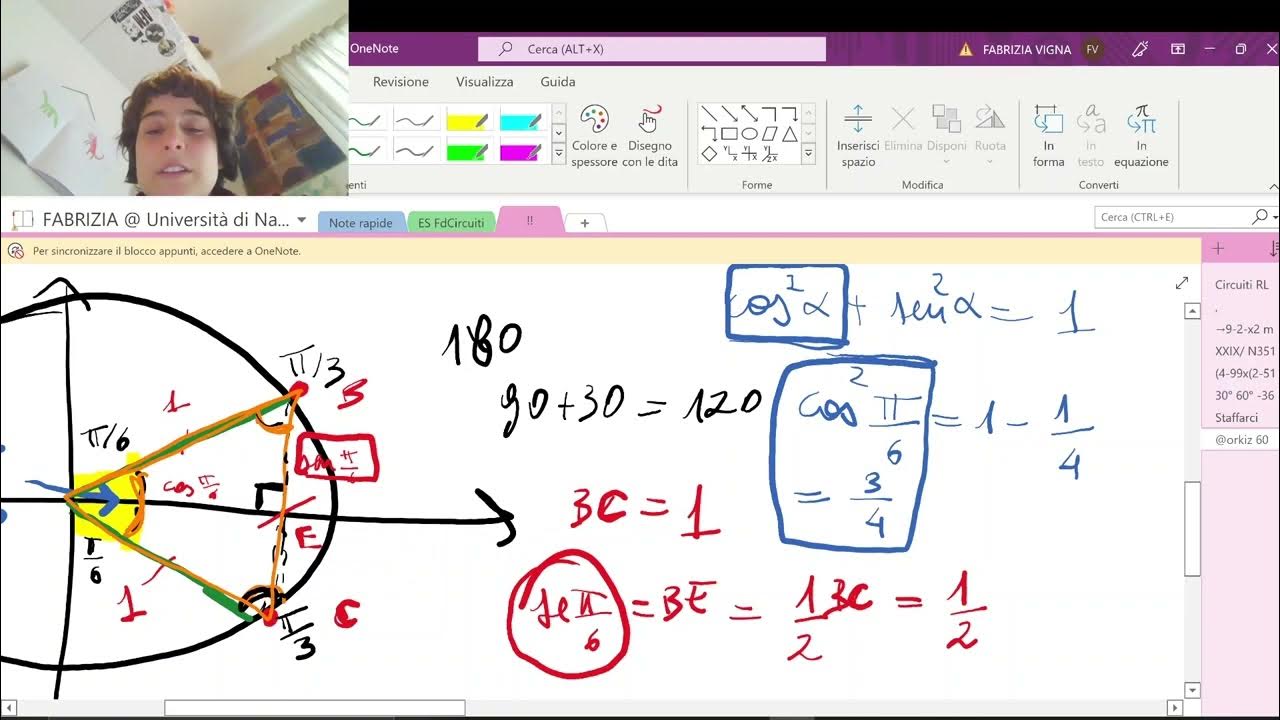 OneNote
Cerca (ALT+X)
FABRIZIA VIGNA
FV
Revisione Visualizza Guida
Colore e spessore
Disegno con le dita
Inserisci spazio
Elimina
Disponi
Ruota
In forma
In testo
In equazione
enti
Forme
Modifica
Converti
FABRIZIA @ Università di Na...
Note rapide
ES FdCircuiti
!!
+
Cerca (CTRL+E)
Per sincronizzare il blocco appunti, accedere a OneNote.
Circuiti RL
.
→9-2-x2 m
XXIX/ N351
(4-99x(2-51
30° 60° -36
Staffarci
@orkiz 60
cos²α + sen²α = 1
180
90+30 = 120
cos² π/6 = 1 - 1/4
= 3/4
BC = 1
se π/6 = BE = 1/2 BC = 1/2
π/3
B
1
π/6
cos π/6
E
π/6
1
π/3
C